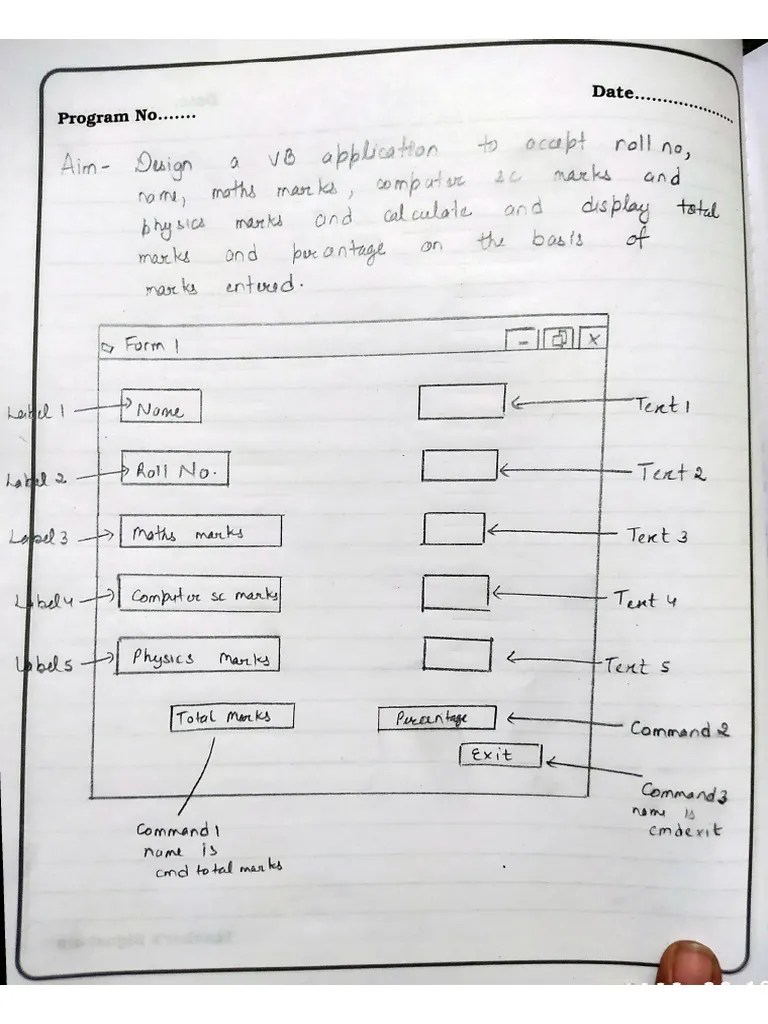 Date....................
Program No.......
Aim- Design a VB application to accept roll no,
name, maths marks, computer sc marks and
physics marks and calculate and display total
marks and percantage on the basis of
marks entered.
Form 1
Label 1 Name Text 1
Label 2 Roll No. Text 2
Label 3 Maths marks Text 3
Label 4 Computer sc marks Text 4
Label 5 Physics Marks Text 5
Total Marks Percentage Command 2
Exit
Command 3
name is
cmdexit
Command 1
name is
cmd total marks